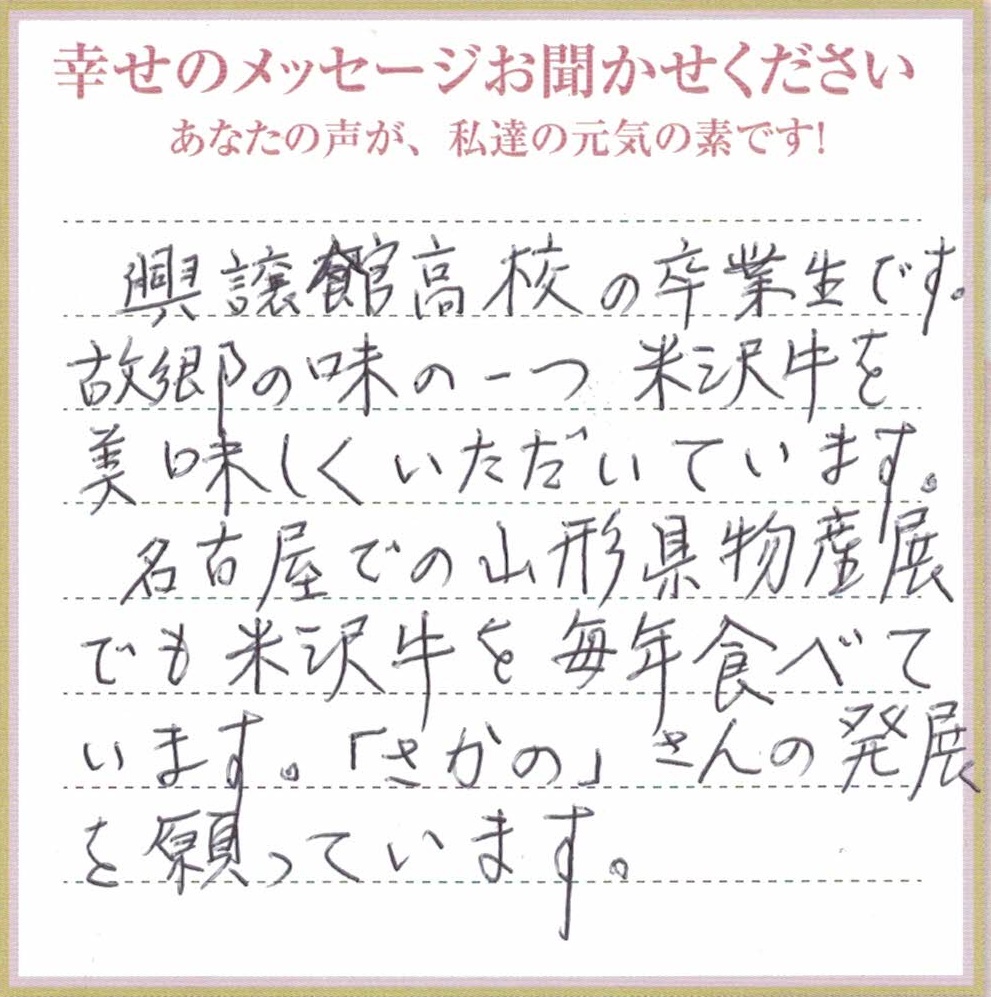 幸せのメッセージお聞かせください
あなたの声が、私達の元気の素です!
興譲館高校の卒業生です。
故郷の味の一つ 米沢牛を
美味しくいただいています。
名古屋での山形県物産展
でも米沢牛を毎年食べて
います。「さかの」さんの発展
を願っています。